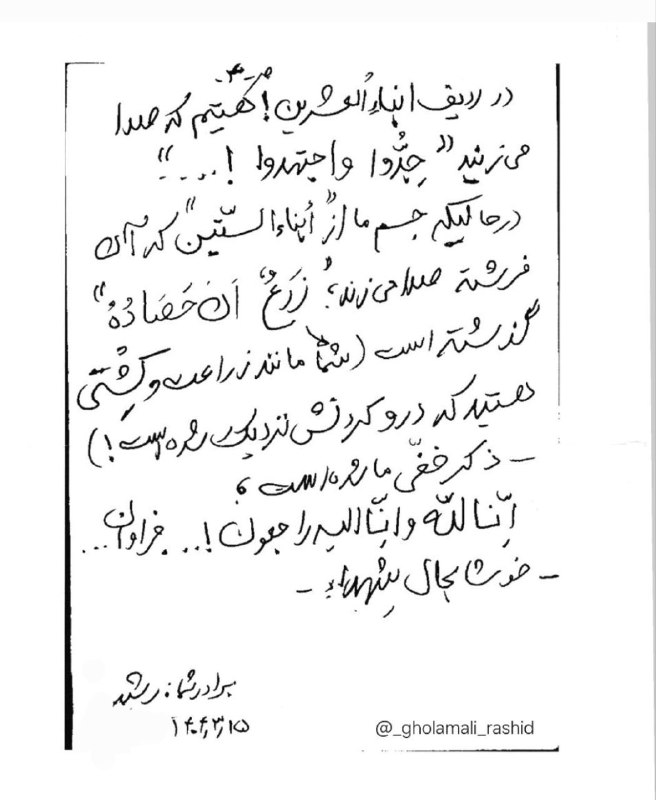 -۳-
در ردیف ابناءُ العشرین! گفتیم که صدا
می‌زنند "جِدُّوا واجتهدوا !...."
در حالیکه جسم ما از "أبناءالستّین" که آن
فرشته صدا می‌زند: "زَرَعُ أنَ حَصَادُهُ"
گذشته است (شما مانند زراعت و کِشتی
هستید که درو کردنش نزدیک شده است!)
- ذکر خفّی ما شده است؛
اِنّا لله وانّا الیه راجعون!... فراوان...
- خوشا بحال شهداء -
برادر شما: رشید
۱۴۰۴,۳,۱۵
@_gholamali_rashid